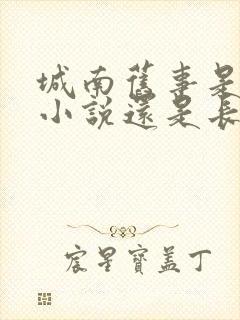 城南舊事是
小說還是長
宸星寶蓋丁